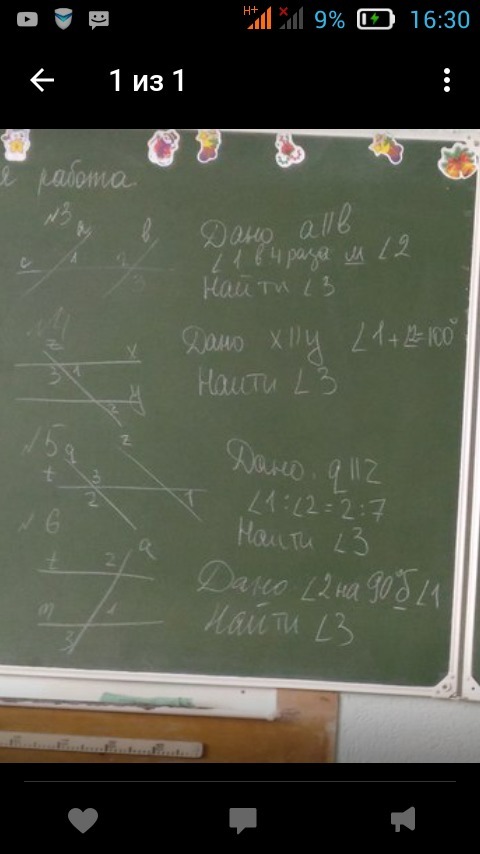 H+
9%
16:30
1 из 1
я работа
№3
a
b
c
1
2
3
Дано a||b
∠1 в 4 раза м ∠2
Найти ∠3
№4
z
x
3
1
y
2
Дано x||y ∠1+∠2=100°
Найти ∠3
№5
q
z
t
3
2
1
Дано. q||z
∠1:∠2=2:7
Найти ∠3
№6
t
2
a
m
1
3
Дано. ∠2 на 90° б ∠1
Найти ∠3